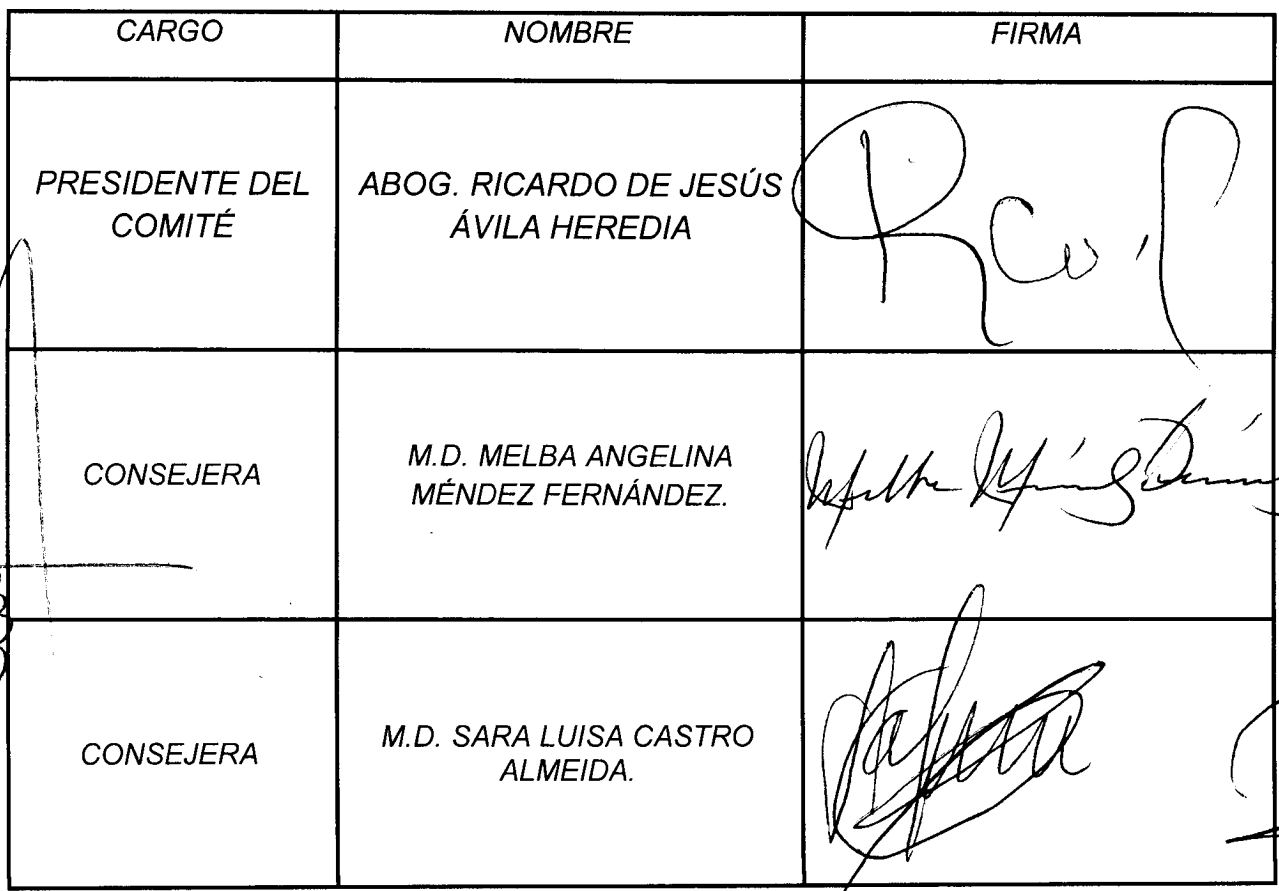 CARGO NOMBRE FIRMA
PRESIDENTE DEL
COMITÉ
ABOG. RICARDO DE JESÚS
ÁVILA HEREDIA
CONSEJERA
M.D. MELBA ANGELINA
MÉNDEZ FERNÁNDEZ.
CONSEJERA
M.D. SARA LUISA CASTRO
ALMEIDA.